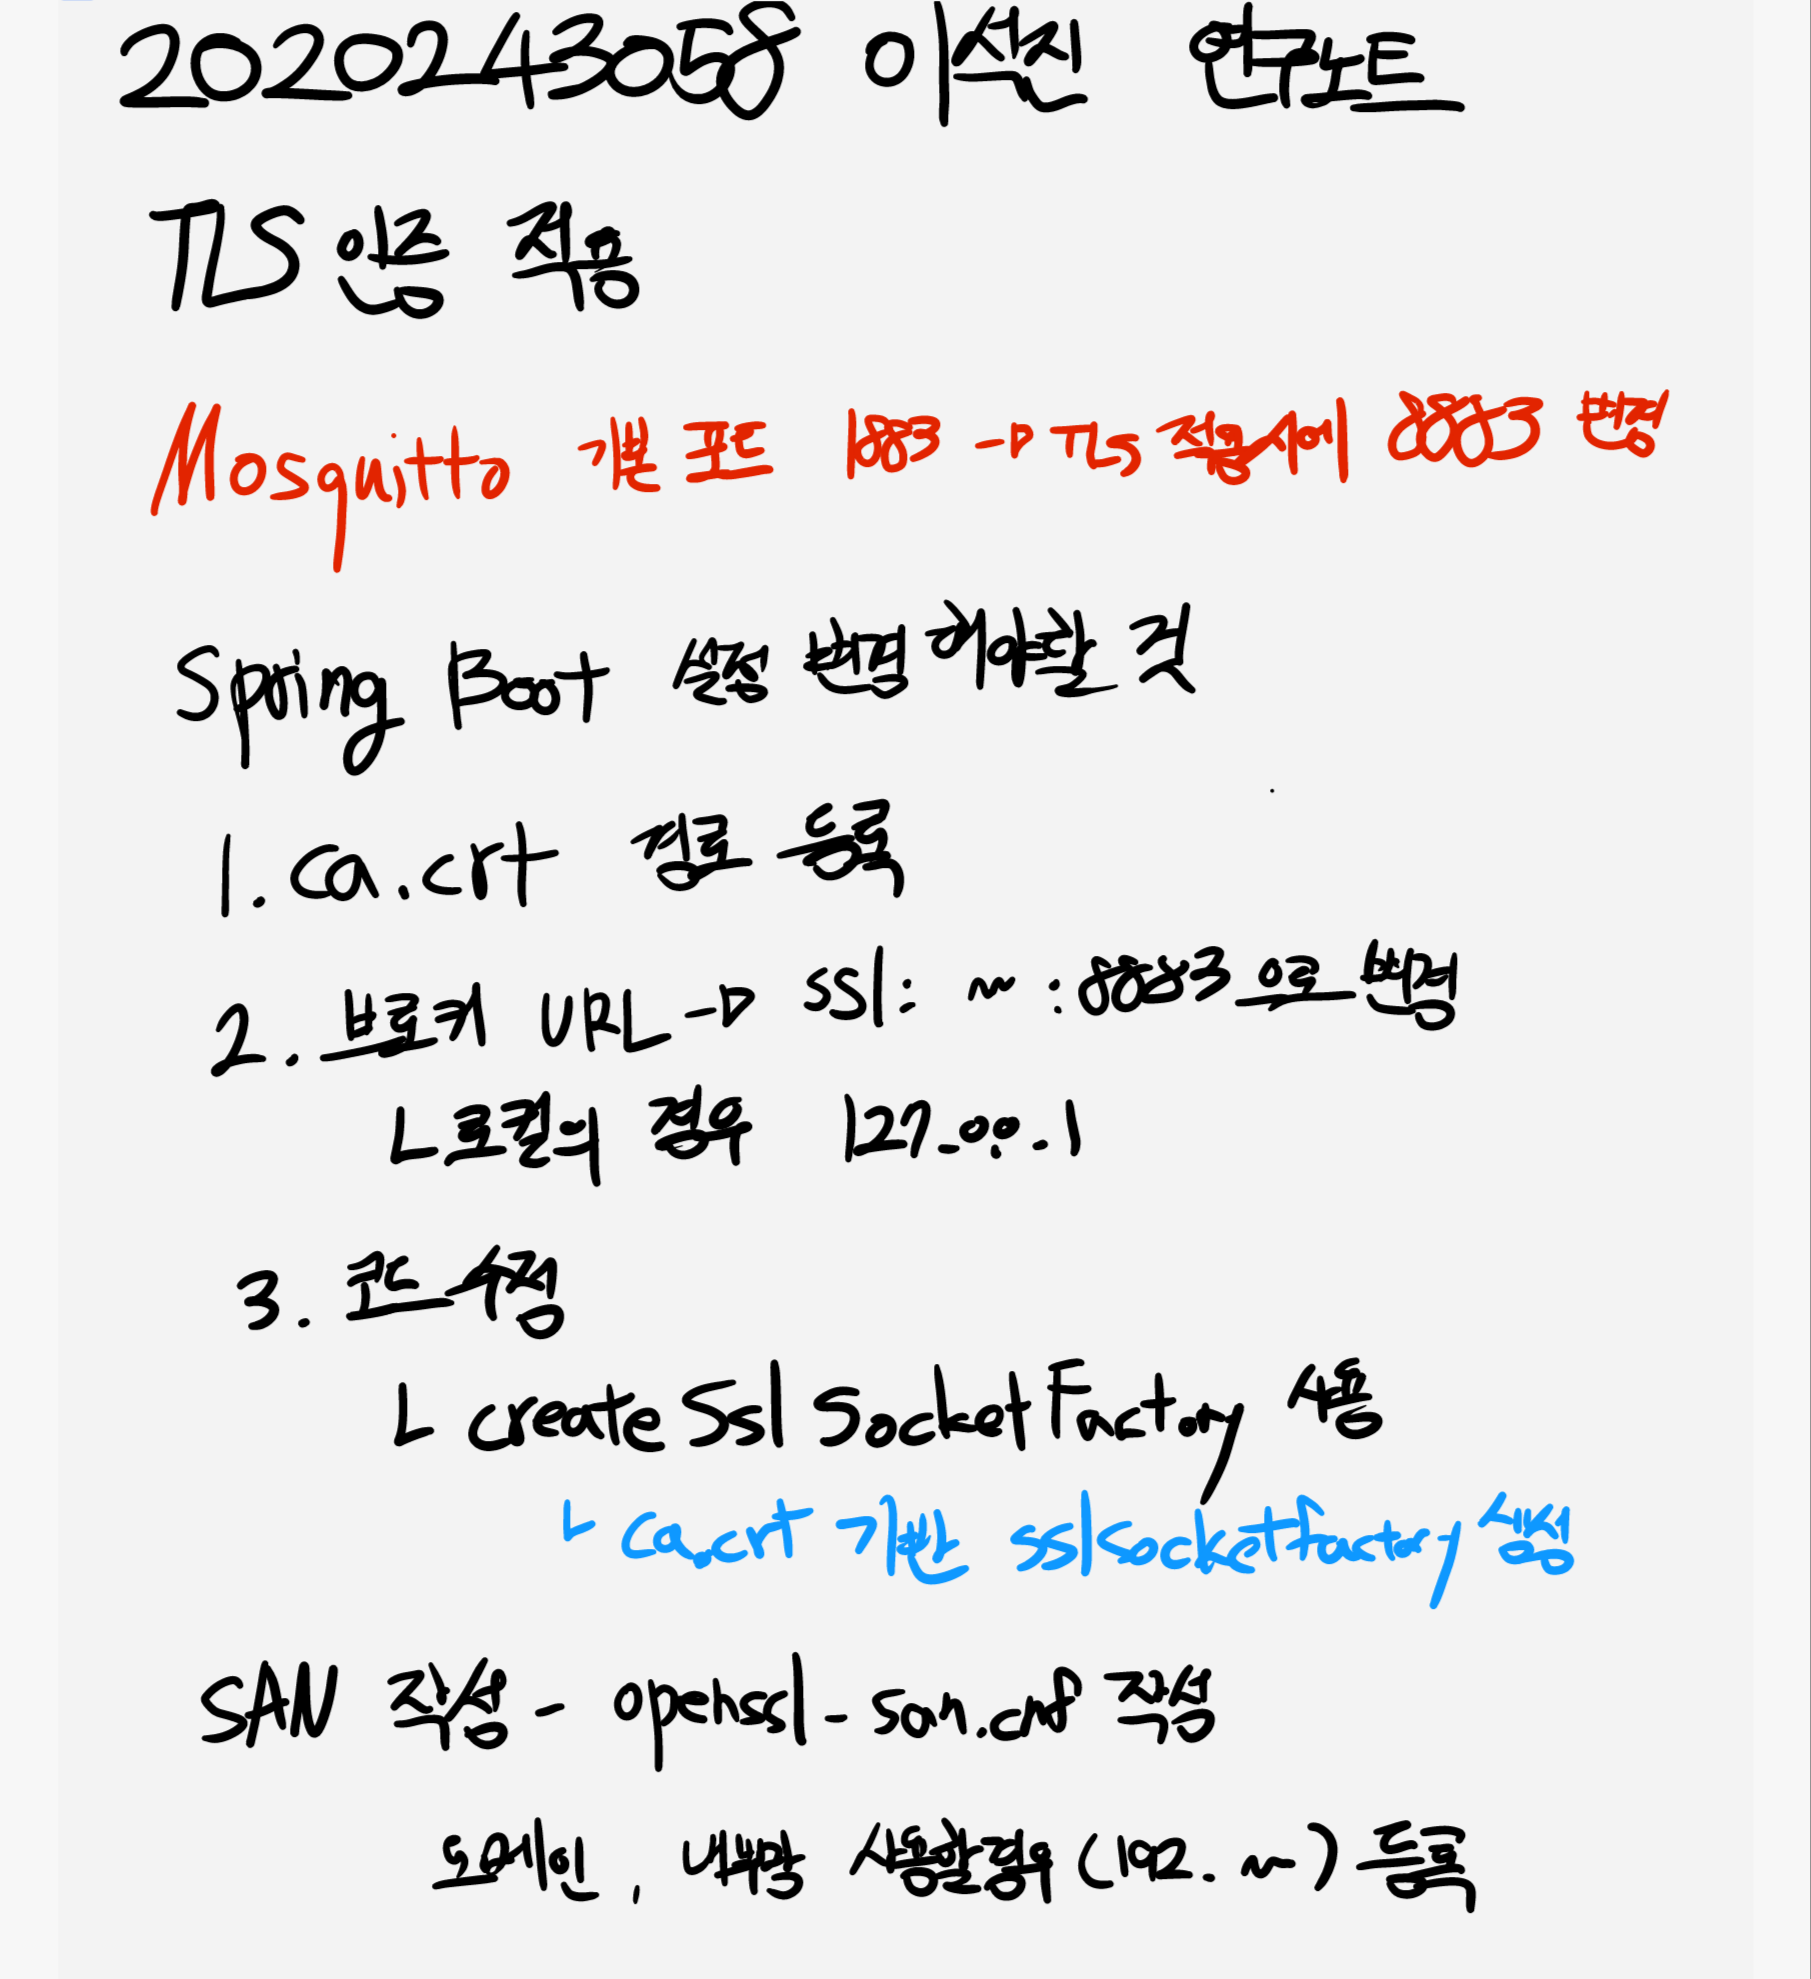 2020243058 이상진 연구노트
TLS 인증 적용
Mosquitto 기본 포트 1883 → TLS 적용시에 8883 변경
Spring Boot 설정 변경 해야할 것
1. ca.crt 경로 등록
2. 브로커 URL → ssl: ~ :8883 으로 변경
ㄴ 로컬의 경우 127.0.0.1
3. 코드 수정
ㄴ createSslSocketFactory 사용
ㄴ ca.crt 기반 sslsocketfactory 생성
SAN 작성 - openssl-san.cnf 작성
도메인, 내부망 사용할경우 (192. ~) 등록